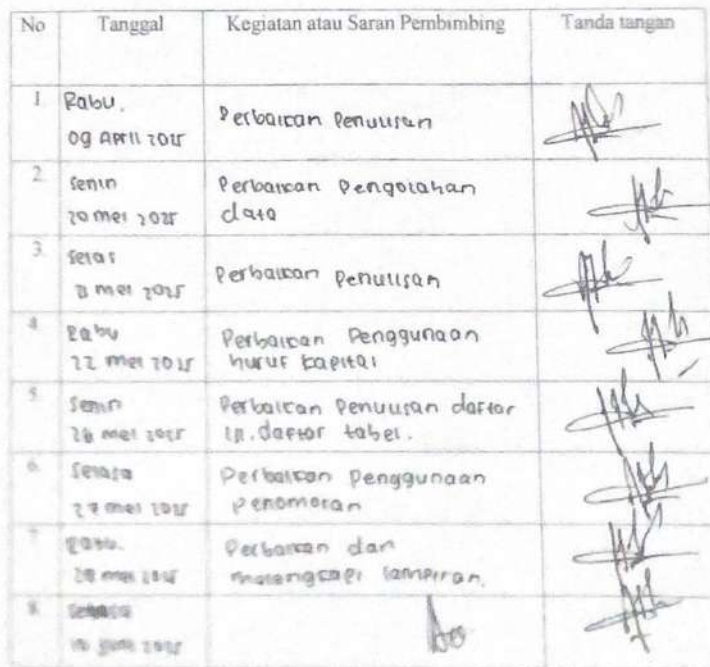 No Tanggal Kegiatan atau Saran Pembimbing Tanda tangan
1. Rabu,
09 April 2025
Perbaikan Penulisan
2. Senin
20 mei 2025
Perbaikan Pengolahan
data
3. Selas
mei 2025
Perbaikan Penulisan
4. Rabu
22 mei 2025
Perbaikan Penggunaan
huruf kapital
5. Senin
26 mei 2025
Perbaikan Penulisan daftar
isi, daftar tabel.
6. Selasa
27 mei 2025
Perbaikan Penggunaan
Penomoran
7. Rabu.
28 mei 2025
Perbaikan dan
melengkapi lampiran.
8. Selasa
10 Juni 2025